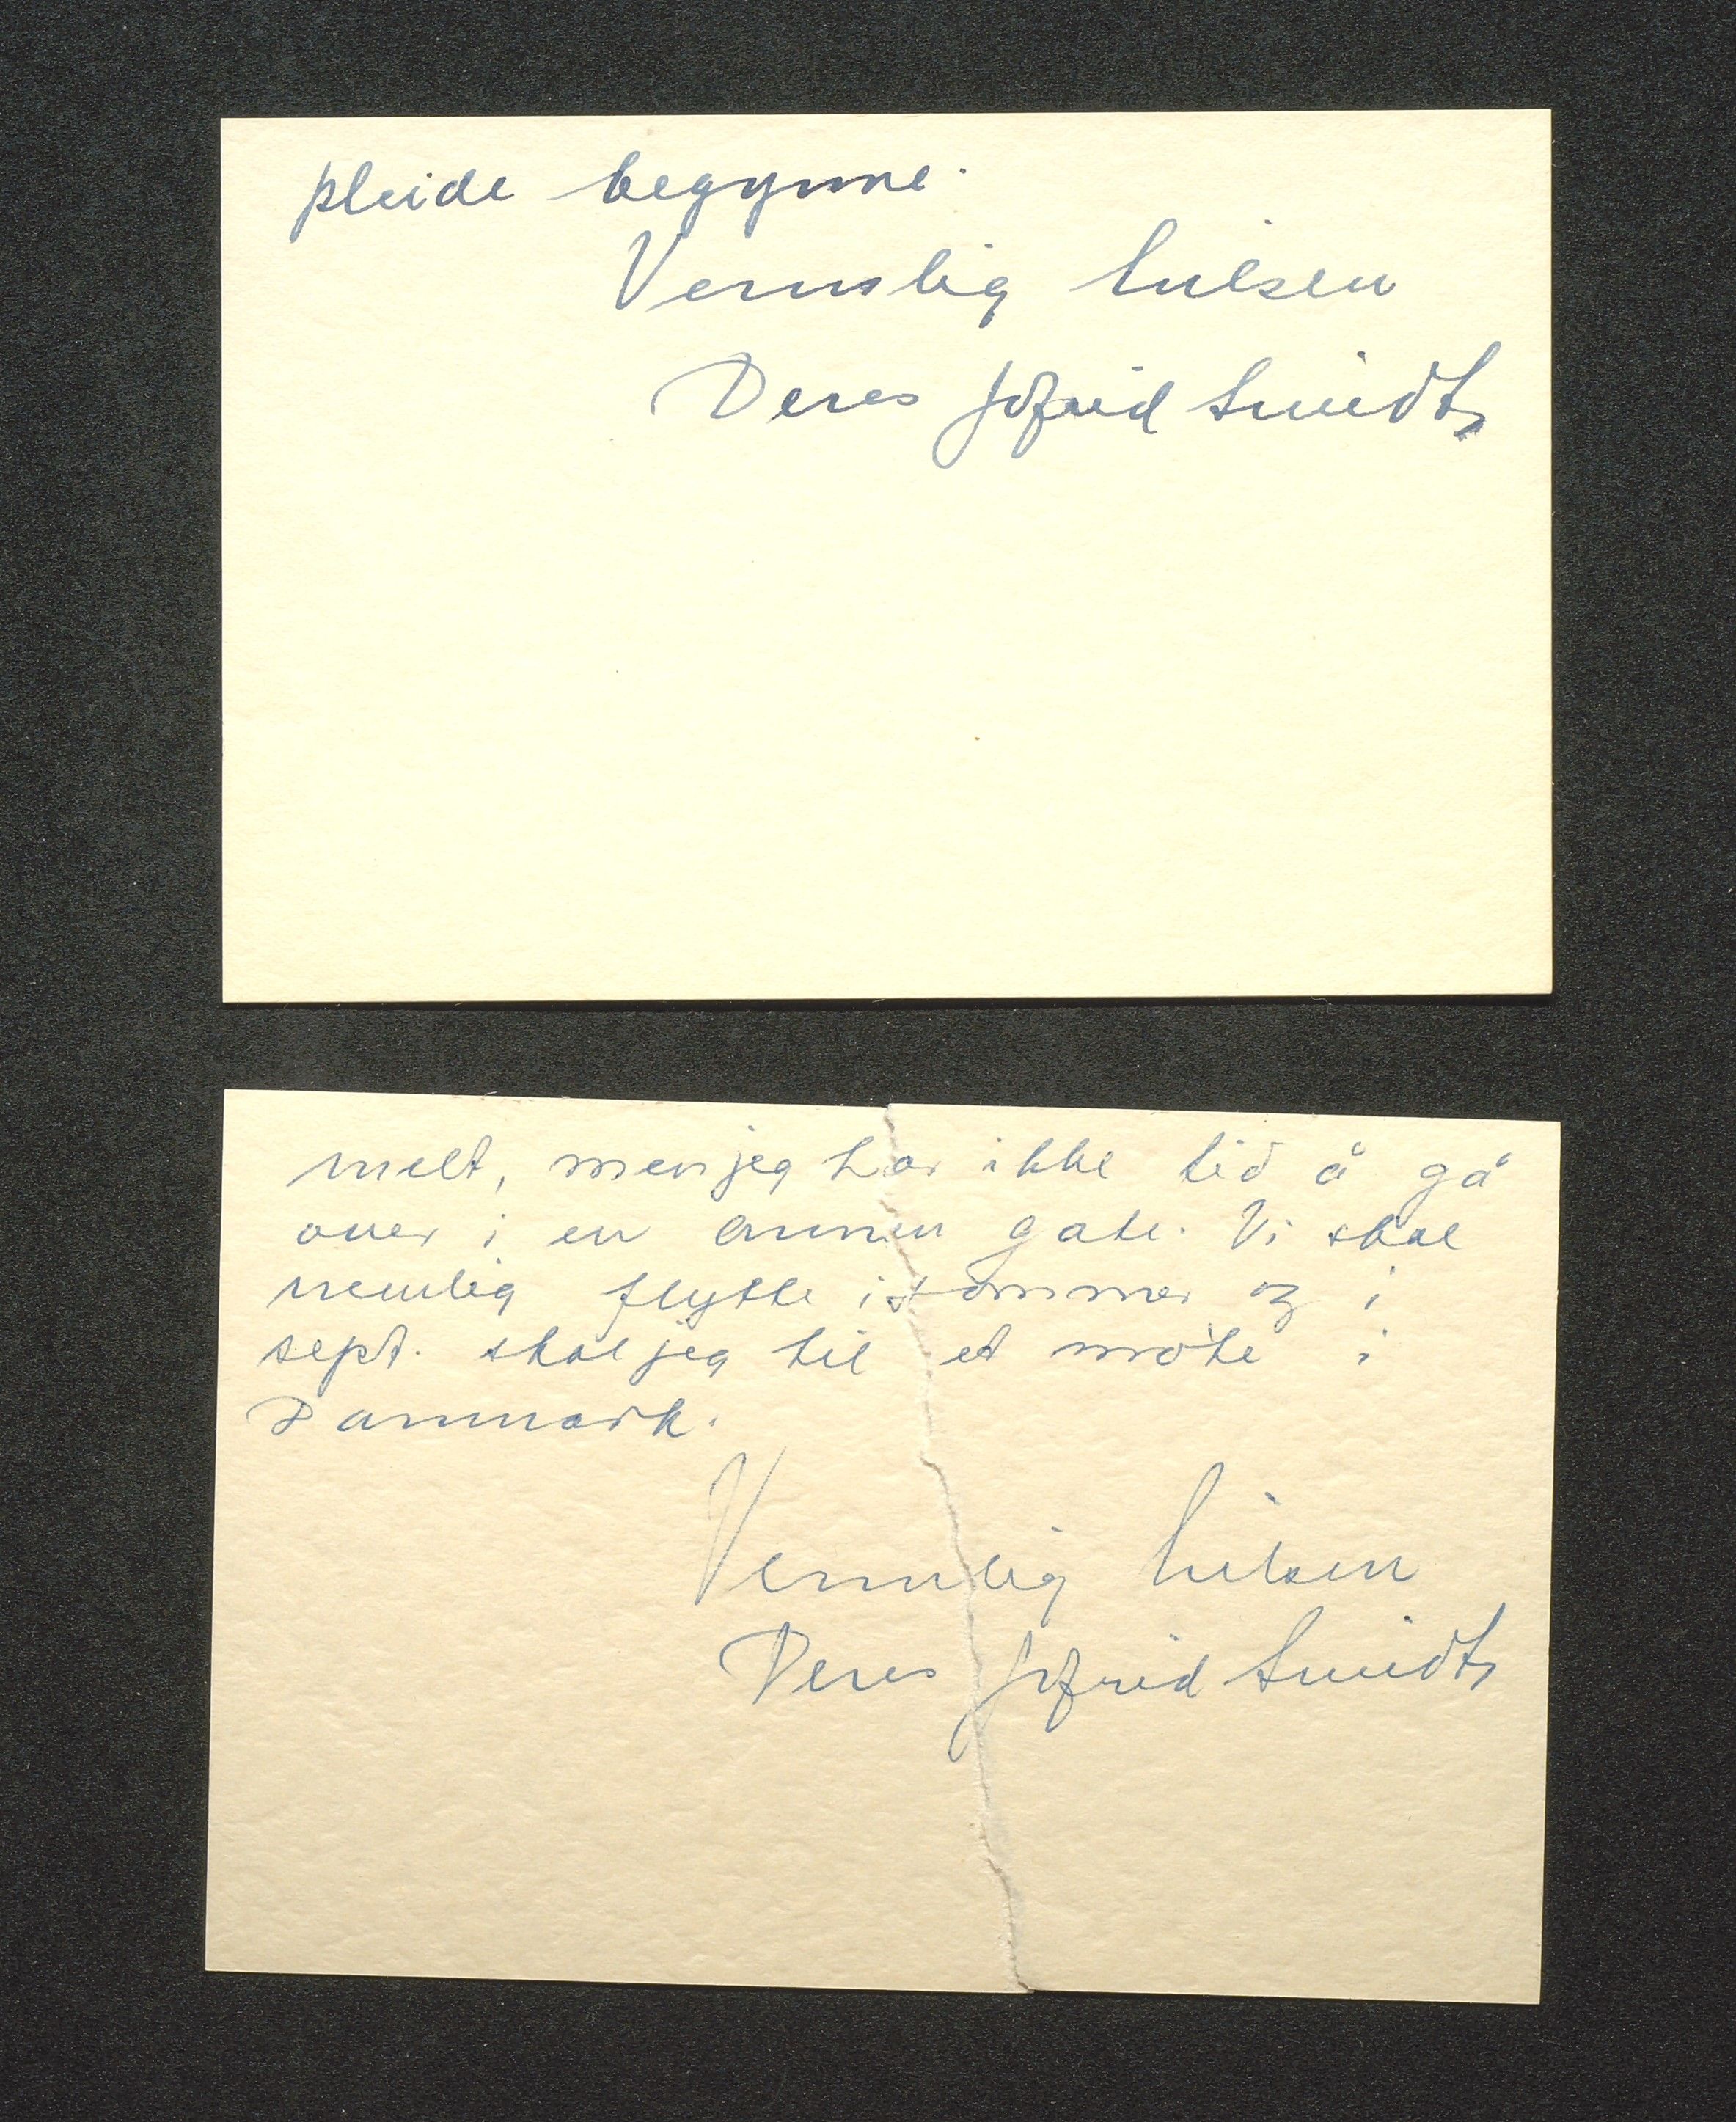 pleide begynne.
Vennlig hilsen
Deres Jofrid Smidt,
melt, men jeg har ikke tid å gå
over i en annen gate. Vi skal
nemlig flytte i sommer og i
sept. skal jeg til et møte i
Danmark.
Vennlig hilsen
Deres Jofrid Smidt,